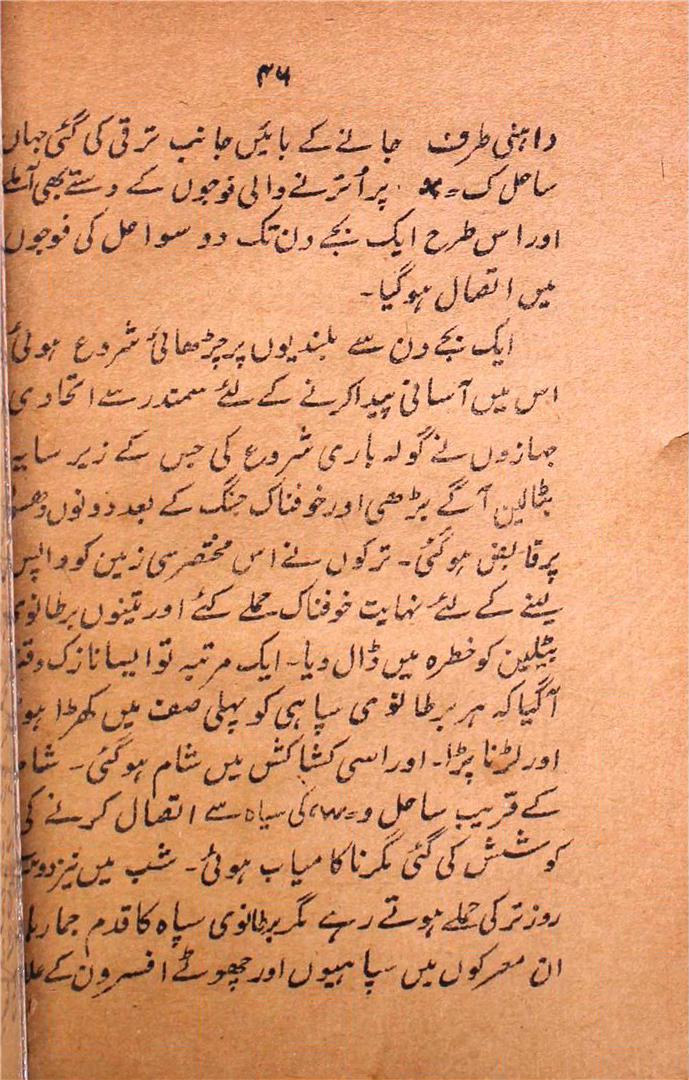 ۴۶
داہنی طرف جانے کے بائیں جانب ترقی کی گئی جہاں
ساحل ک = x پر اُترنے والی فوجوں کے دستے بھی آملے
اور اس طرح ایک بجے دن تک دو سواحل کی فوجوں
میں اتصال ہوگیا۔
ایک بجے دن سے بلندیوں پر چڑھائی شروع ہوئی
اس میں آسانی پیدا کرنے کے لئے سمندر سے اتحادی
جہازوں نے گولہ باری شروع کی جس کے زیر سایہ
بٹالین آگے بڑھی اور خوفناک جنگ کے بعد دونوں
پر قابض ہوگئی۔ ترکوں نے اس مختصر سی زمین کو واپس
لینے کے لئے نہایت خوفناک حملے کئے اور تینوں برطانوی
بٹیلین کو خطرہ میں ڈال دیا۔ ایک مرتبہ تو ایسا نازک
آگیا کہ ہر برطانوی سپاہی کو پہلی صف میں کھڑا
اور لڑنا پڑا۔ اور اسی کشاکش میں شام ہوگئی۔
کے قریب ساحل و = w کی سپاہ سے اتصال کرنے کی
کوشش کی گئی مگر ناکامیاب ہوئی۔ شب میں نیز
روز ترکی حملے ہوتے رہے مگر برطانوی سپاہ کا قدم جما رہا
ان معرکوں میں سپاہیوں اور چھوٹے افسروں کے